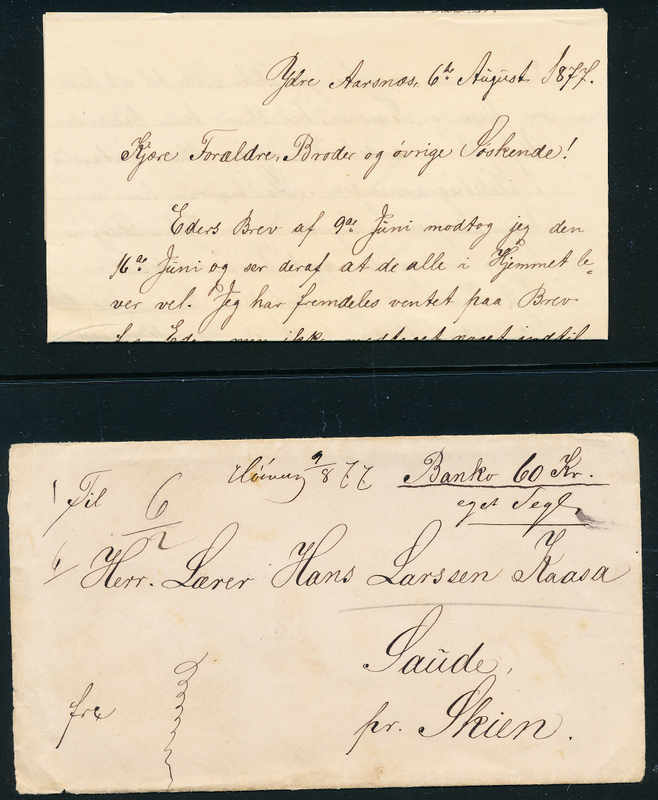 Ydre Aarsnæs, 6te August 1877.
Kjære Forældre, Broder og övrige Söskende!
Eders Brev af 9de Juni modtog jeg den
16de Juni og ser deraf at de alle i Hjemmet le-
ver vel. Jeg har fremdeles ventet paa Brev
fra Eder, men ikke modtaget noget indtil
9/8 77 Banko 60 Kr.
Til 6 eget Segl,
Herr. Lærer Hans Larssen Kaasa
Saude,
fra pr. Skien.